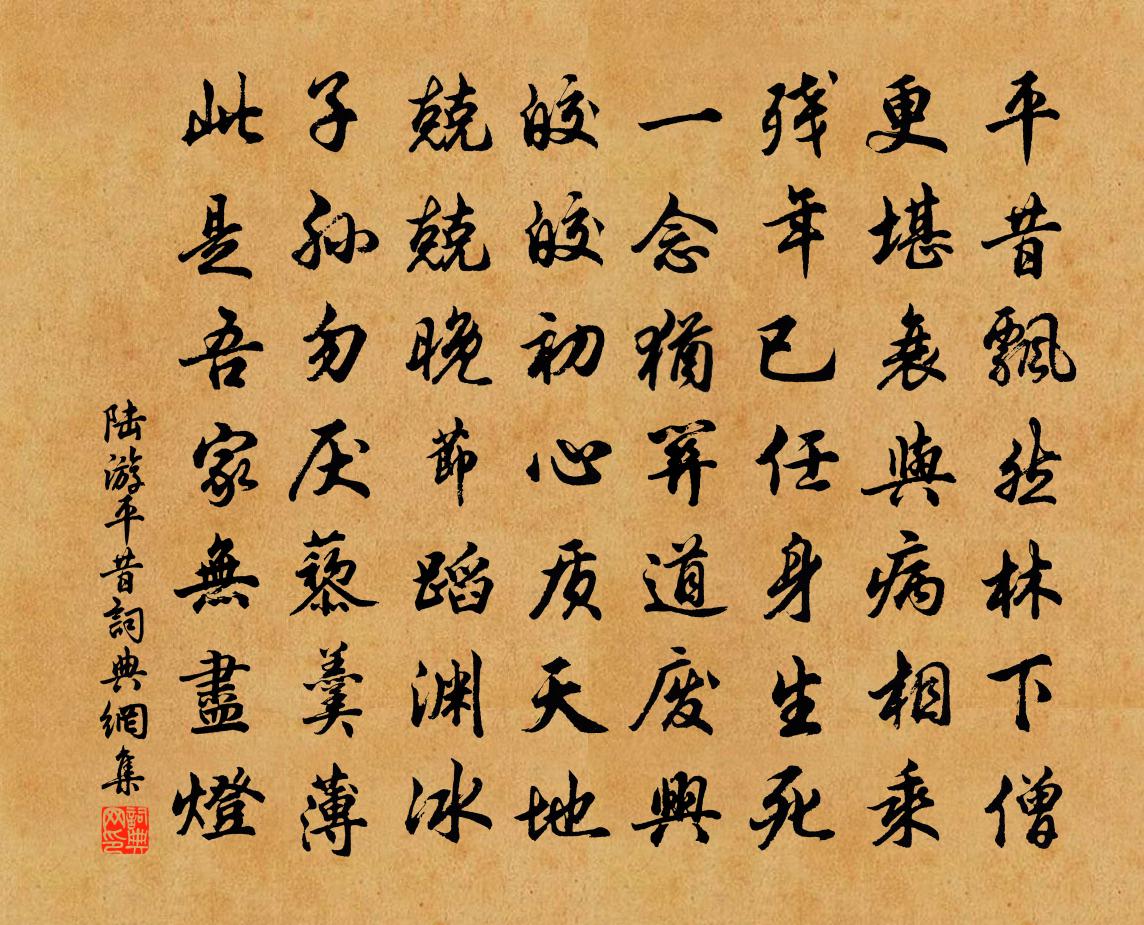 平昔飄然林下僧
更堪衰與病相乘
残年已任身生死
一念猶關道廢興
皎皎初心质天地
兢兢晚節蹈渊冰
子孙勿厌藜羹薄
此是吾家無盡燈
陆游平昔詞典網集
詞典网印